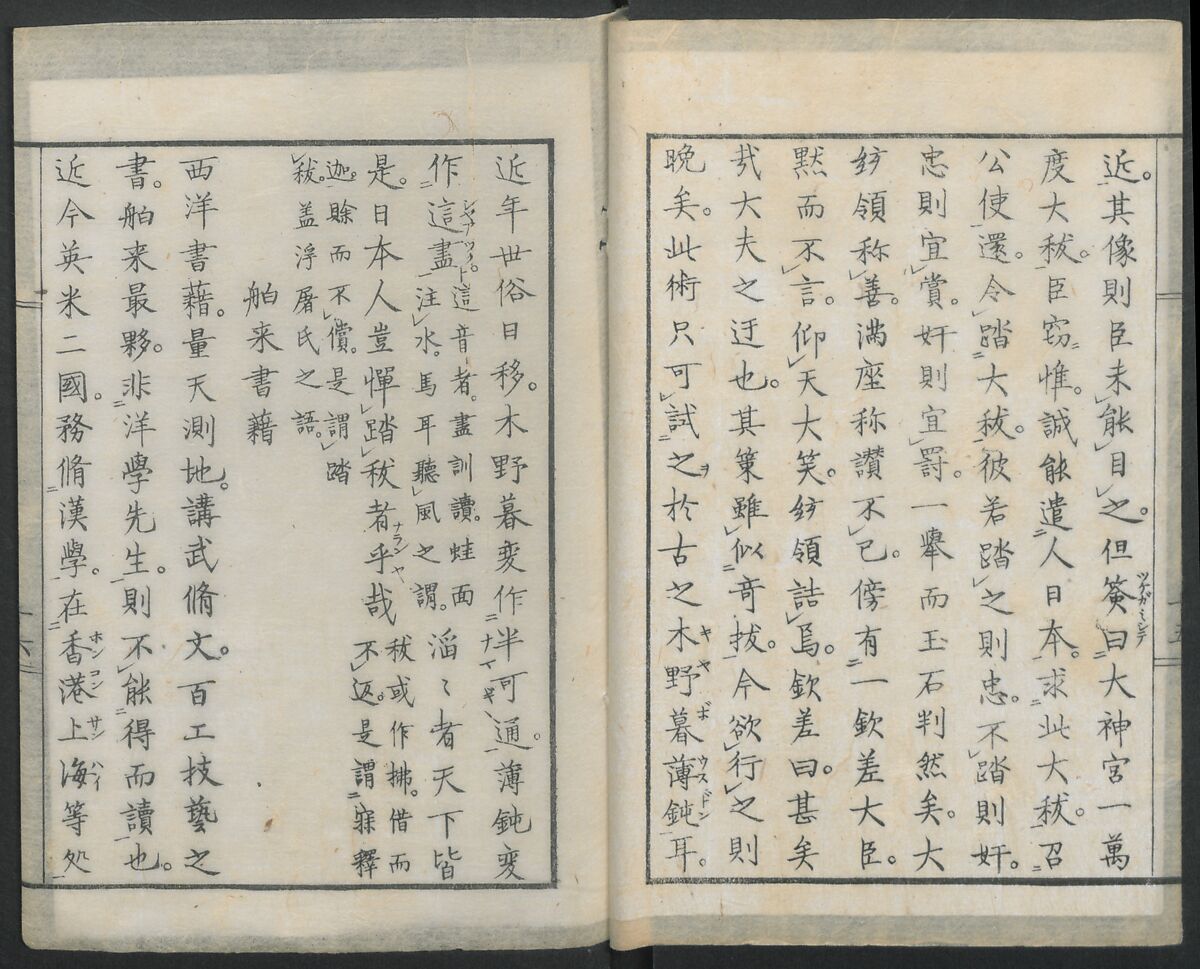 近。其像則臣未能目之。但簽曰大神宮一萬
度大秡。臣窃惟。誠能遣人日本。求此大秡。召
公使還。令踏大秡。彼若踏之則忠。不踏則奸。
忠則宜賞。奸則宜罸。一擧而玉石判然矣。大
紡領称善。満座称讃不已。傍有一欽差大臣。
黙而不言。仰天大笑。紡領詰焉。欽差曰。甚矣
哉大夫之迂也。其策雖似竒抜。今欲行之則
晩矣。此術只可試之於古之木野暮薄鈍耳。
近年世俗日移。木野暮変作半可通。薄鈍変
作這盡。這音者。盡訓讀。蛙面注水。馬耳聽風之謂。滔〻者天下皆
是。日本人豈憚踏秡者乎哉秡或作拂。借而不返。是謂寐釋
迦。賖而不償。是謂踏
秡。盖浮屠氏之語。
舶来書藉
西洋書藉。量天測地。講武脩文。百工技藝之
書。舶来最夥。非洋學先生。則不能得而讀也。
近今英米二國。務脩漢學。在香港上海等処